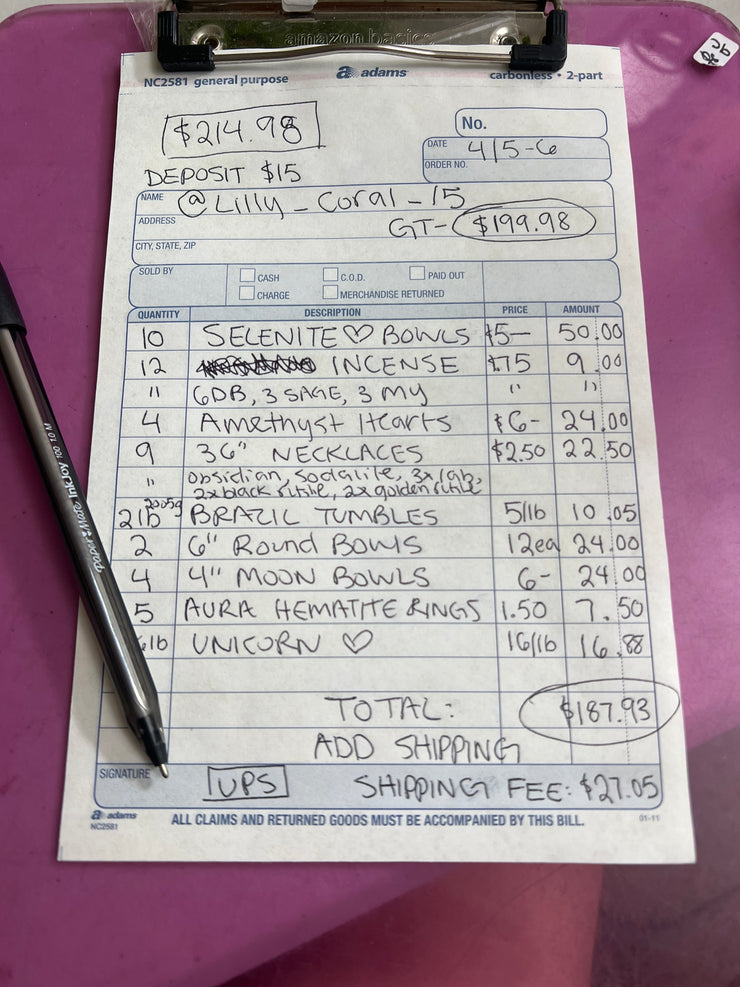 amazon basics
NC2581 general purpose
a adams
carbonless • 2-part
$214.98
No.
DATE 4/5-6
ORDER NO.
DEPOSIT $15
NAME @Lilly_Coral_15
ADDRESS
GT- $199.98
CITY, STATE, ZIP
SOLD BY
CASH C.O.D. PAID OUT
CHARGE MERCHANDISE RETURNED
QUANTITY DESCRIPTION PRICE AMOUNT
10 SELENITE ♡ BOWLS $5- 50.00
12 INCENSE $.75 9.00
" 6DB, 3 SAGE, 3 MY " "
4 Amethyst Hearts $6- 24.00
9 36" NECKLACES $2.50 22.50
" obsidian, sodalite, 3x lab,
2x black rutile, 2x golden rutile
2lb BRAZIL TUMBLES 5/lb 10.05
2 6" Round Bowls 12ea 24.00
4 4" MOON BOWLS 6- 24.00
5 AURA HEMATITE RINGS 1.50 7.50
lb UNICORN ♡ 16/lb 16.88
TOTAL: $187.93
ADD SHIPPING
SIGNATURE UPS SHIPPING FEE: $27.05
a adams
NC2581
ALL CLAIMS AND RETURNED GOODS MUST BE ACCOMPANIED BY THIS BILL.
01-11
Paper:Mate InkJoy 100 1.0 M